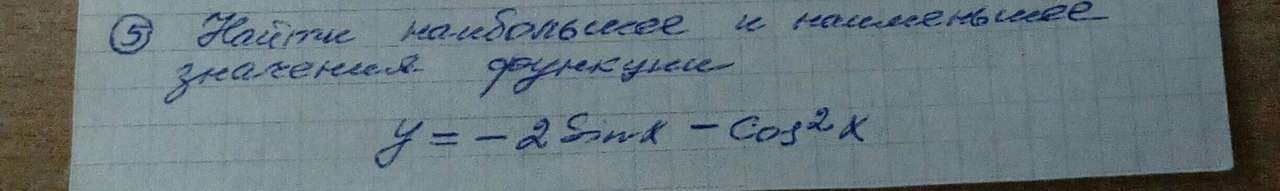 ⑤ Найти наибольшее и наименьшее
значения функции
y = - 2 Sin x - Cos²x